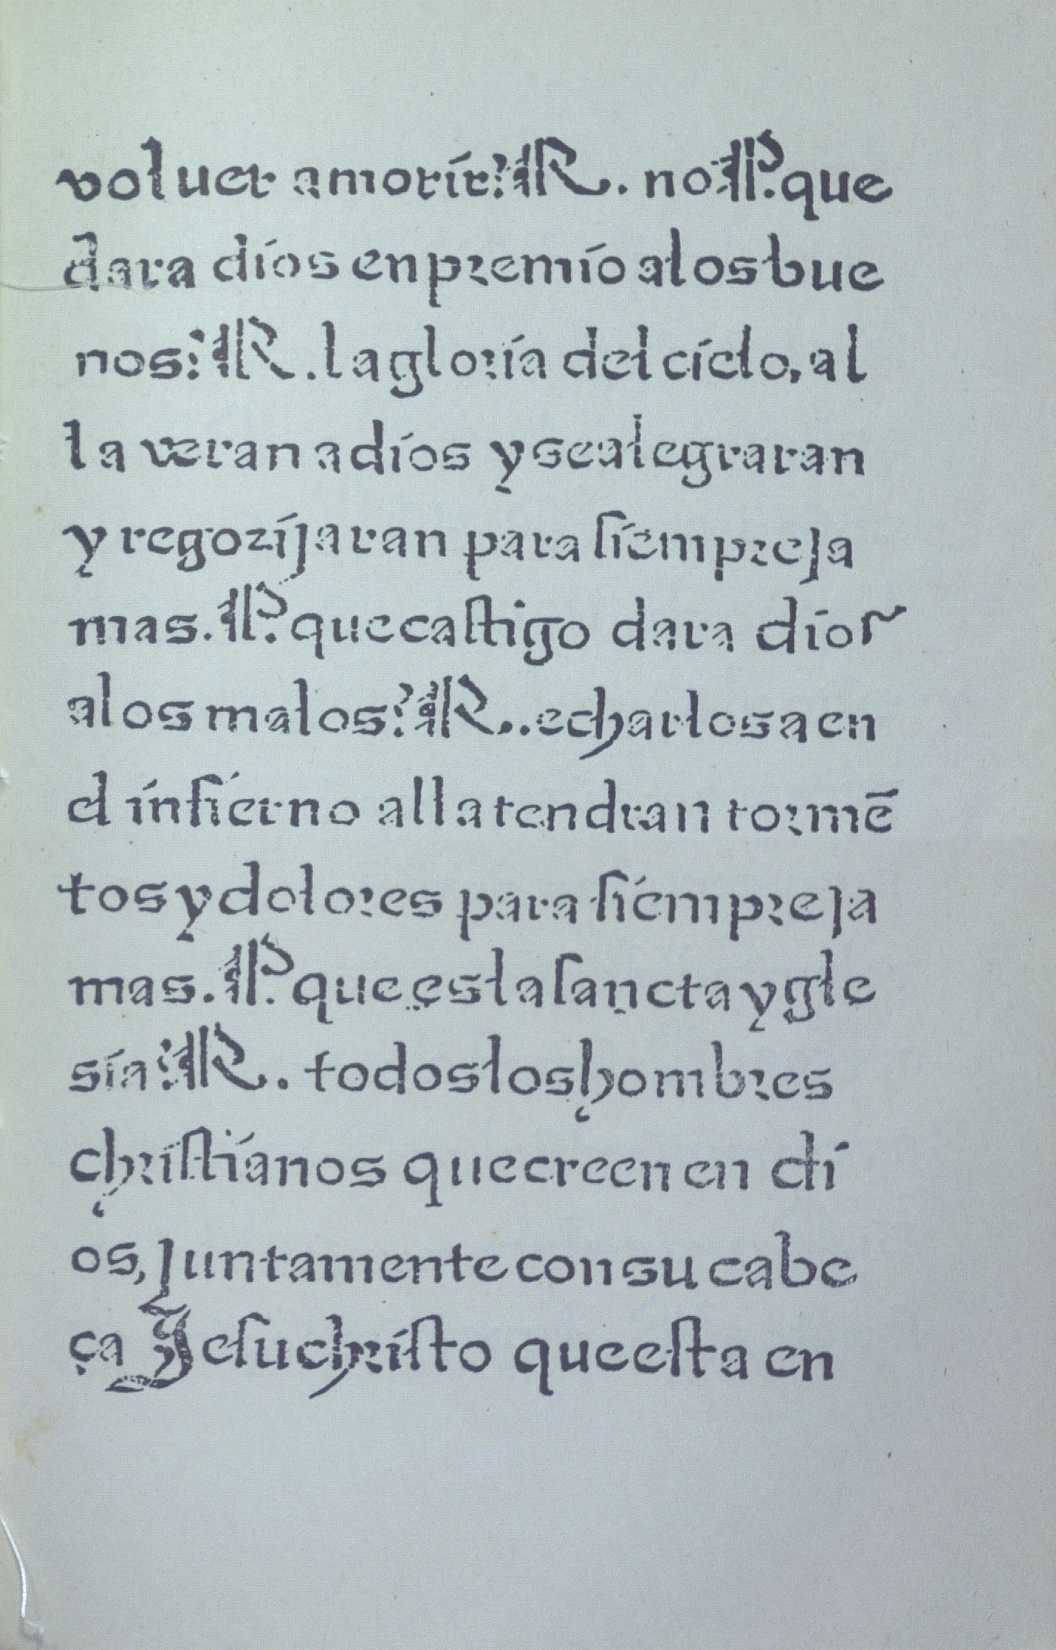 voluer a morir? R. no. P. que
dara dios en premio alos bue
nos? R. la gloria del cielo, al
la veran a dios y se alegraran
y regozijaran para siempre ja
mas. P. que castigo dara dios
alos malos? R.. echarlos a en
el infierno alla tendran tormẽ
tos y dolores para siempre ja
mas. P. que es la sancta ygle
sia? R. todos los hombres
christianos que creen en di
os, juntamente con su cabe
ça Jesuchristo que esta en